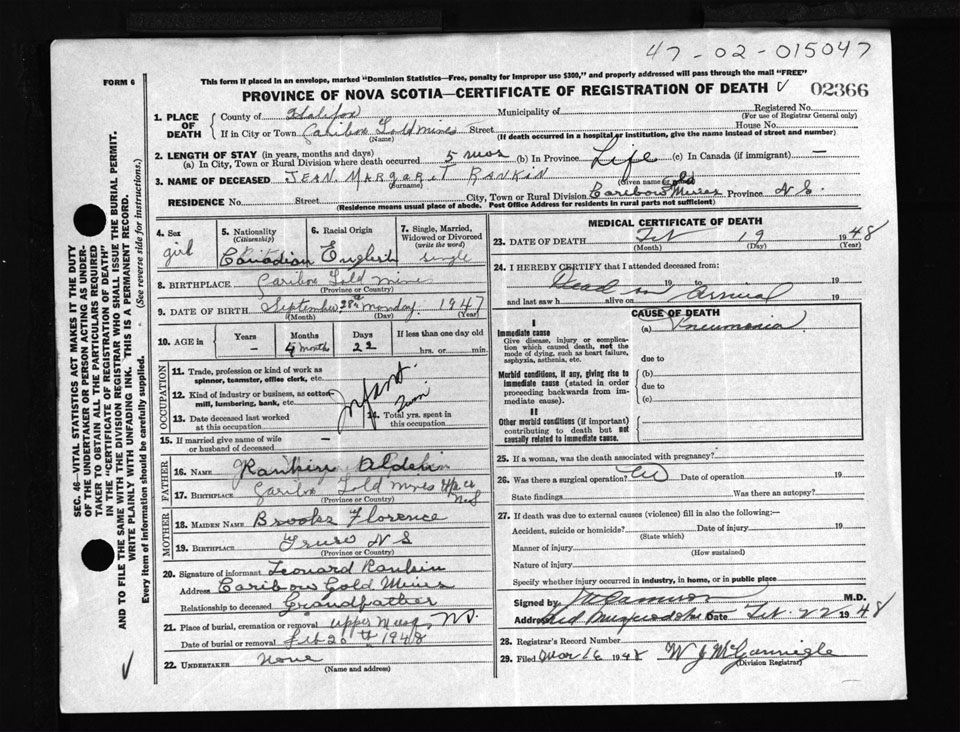 47-02-015047
FORM 6
This form if placed in an envelope, marked "Dominion Statistics—Free, penalty for improper use $300," and properly addressed will pass through the mail "FREE"
PROVINCE OF NOVA SCOTIA—CERTIFICATE OF REGISTRATION OF DEATH
02366
1. PLACE OF DEATH
County of Halifax Municipality of Registered No.
(For use of Registrar General only)
If in City or Town Caribou Gold Mines Street House No.
(Name) (If death occurred in a hospital or institution, give the name instead of street and number)
2. LENGTH OF STAY (in years, months and days)
(a) In City, Town or Rural Division where death occurred 5 mos (b) In Province Life (c) In Canada (if immigrant) —
3. NAME OF DECEASED JEAN MARGARET RANKIN
(Surname) (Given name)
RESIDENCE No. Street City, Town or Rural Division Caribow Gold Mines Province N S.
(Residence means usual place of abode. Post Office Address for residents in rural parts not sufficient)
SEC. 46—VITAL STATISTICS ACT MAKES IT THE DUTY
OF THE UNDERTAKER OR PERSON ACTING AS UNDER-
TAKER TO OBTAIN ALL THE PARTICULARS REQUIRED
IN THE "CERTIFICATE OF REGISTRATION OF DEATH"
AND TO FILE THE SAME WITH THE DIVISION REGISTRAR WHO SHALL ISSUE THE BURIAL PERMIT.
WRITE PLAINLY WITH UNFADING INK. THIS IS A PERMANENT RECORD.
Every item of information should be carefully supplied. (See reverse side for instructions.)
4. Sex
girl
5. Nationality
(Citizenship)
Canadian
6. Racial Origin
English
7. Single, Married,
Widowed or Divorced
(write the word)
Single
8. BIRTHPLACE Caribou Gold mines
(Province or Country)
9. DATE OF BIRTH September 28th Monday 1947
(Month) (Day) (Year)
10. AGE in
Years Months Days If less than one day old
- 4 month 22 hrs. or min.
OCCUPATION
11. Trade, profession or kind of work as
spinner, teamster, office clerk, etc.
12. Kind of industry or business, as cotton-
mill, lumbering, bank, etc.
Infant
13. Date deceased last worked
at this occupation
14. Total yrs. spent in
this occupation
15. If married give name of wife
or husband of deceased —
FATHER
16. NAME Rankin
17. BIRTHPLACE Caribou Gold Mines
(Province or Country)
MOTHER
18. MAIDEN NAME Brooks Florence
19. BIRTHPLACE Truro N S
(Province or Country)
20. Signature of informant Leonard Rankin
Address Caribow Gold Mines
Relationship to deceased Grandfather
21. Place of burial, cremation or removal Upper
Date of burial or removal Feb 20th 1948
22. UNDERTAKER None
(Name and address)
MEDICAL CERTIFICATE OF DEATH
23. DATE OF DEATH Feb 19 1948
(Month) (Day) (Year)
24. I HEREBY CERTIFY that I attended deceased from:
Dead on arrival
19 to 19
and last saw h alive on 19
CAUSE OF DEATH
I
Immediate cause
Give disease, injury or complica-
tion which caused death, not the
mode of dying, such as heart failure,
asphyxia, asthenia, etc.
(a) Pneumonia
due to
Morbid conditions, if any, giving rise to
immediate cause (stated in order
proceeding backwards from im-
mediate cause).
(b)
due to
(c)
II
Other morbid conditions (if important)
contributing to death but not
causally related to immediate cause.
25. If a woman, was the death associated with pregnancy?
26. Was there a surgical operation? No Date of operation 19
State findings Was there an autopsy?
27. If death was due to external causes (violence) fill in also the following:—
Accident, suicide or homicide? Date of injury 19
(State which)
Manner of injury
(How sustained)
Nature of injury
Specify whether injury occurred in industry, in home, or in public place
Signed by M.D.
Address Mid Musquodoboit Date Feb. 22 1948
28. Registrar's Record Number
29. Filed Mar 16 1948 W J McGonnigle
(Division Registrar)